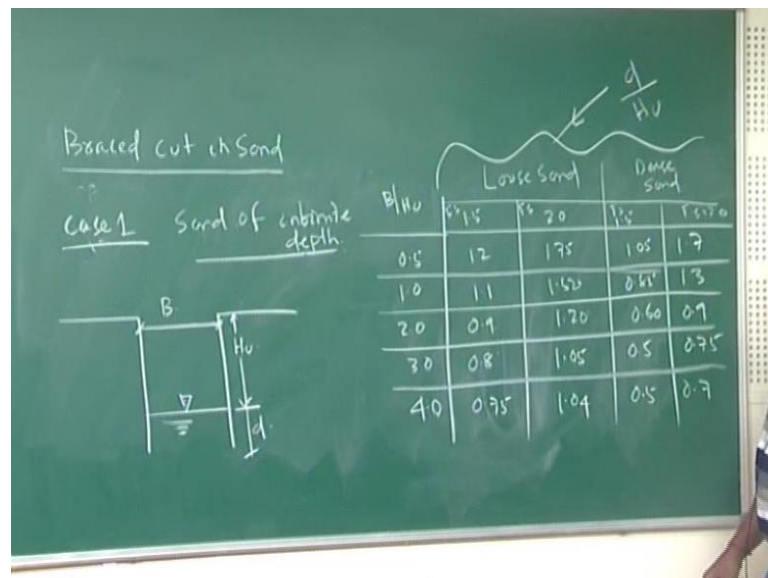 Braced cut in Sand
Case 1 Sand of infinite
depth
B
Hu
d
d
Hu
Loose Sand
Dense
Sand
B/Hu 1.5 2.0 1.5
0.5 12 1.75 1.05 1.7
1.0 1.1 1.3
2.0 0.9 1.20 0.60 0.9
3.0 0.8 1.05 0.5 0.75
4.0 0.75 1.04 0.5 0.7